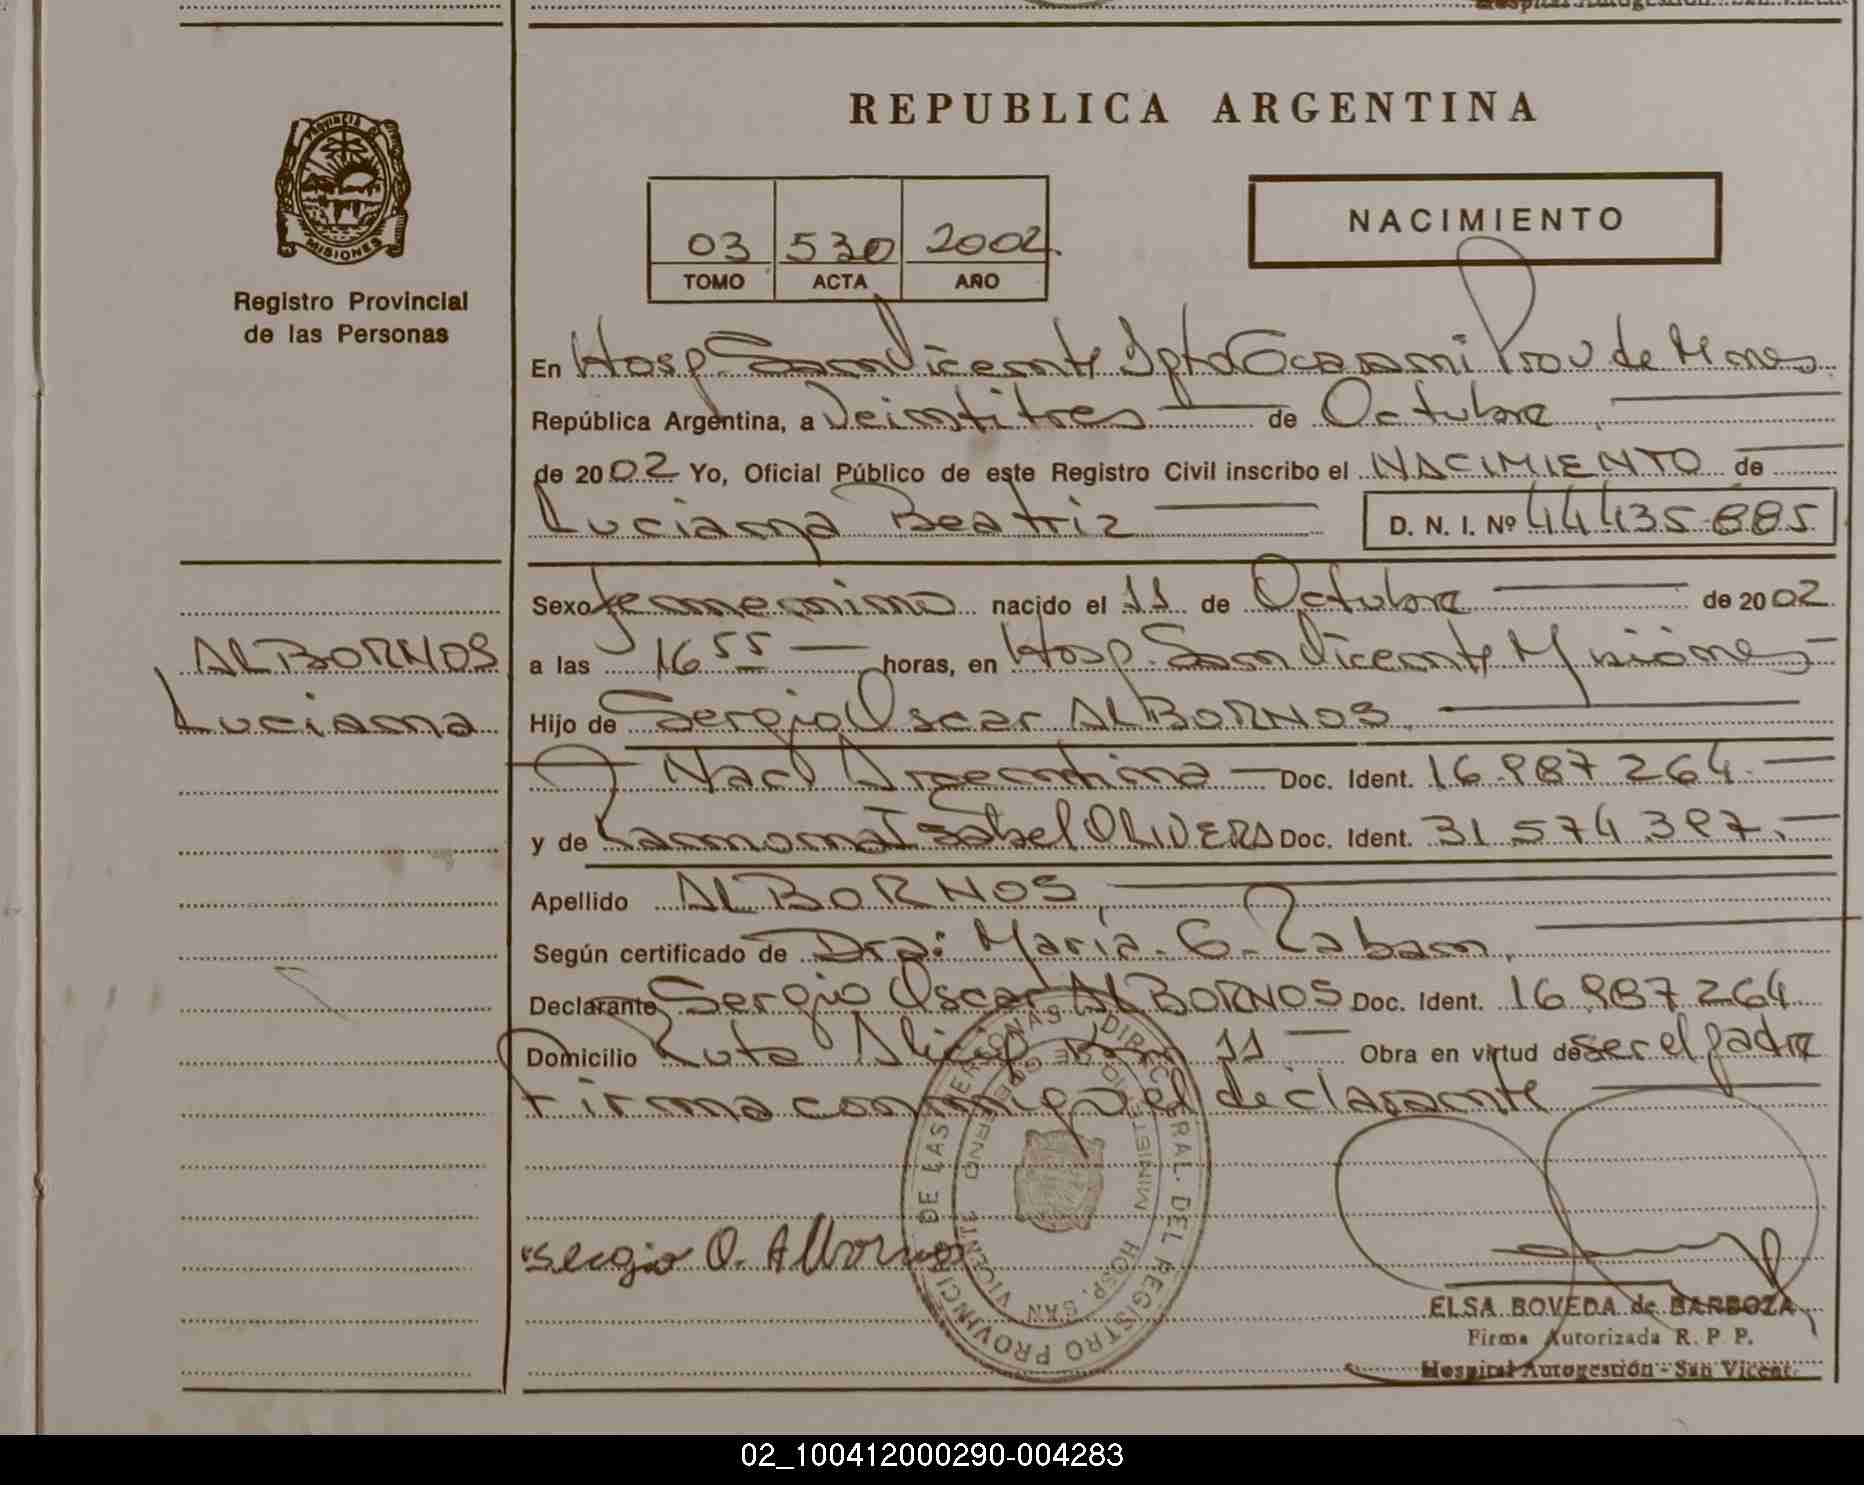 REPUBLICA ARGENTINA
PROVINCIA DE MISIONES
Registro Provincial
de las Personas
03 530 2002
TOMO ACTA AÑO
NACIMIENTO
En Hosp. San Vicente Dpto Guaraní Prov de Mnes
República Argentina, a Veintitres de Octubre
de 2002 Yo, Oficial Público de este Registro Civil inscribo el NACIMIENTO de
Luciana Beatriz D. N. I. Nº 44435885
Sexo femenino nacido el 11 de Octubre de 2002
ALBORNOS
Luciana
a las 16 55 horas, en Hosp. San Vicente Misiones
Hijo de Sergio Oscar ALBORNOS
Nacl Argentina Doc. Ident. 16.987264
y de Ramona Isabel OLIVERA Doc. Ident. 31.574.397
Apellido ALBORNOS
Según certificado de Dra: María. G. Zaban
Declarante Sergio Oscar ALBORNOS Doc. Ident. 16.987264
Domicilio Ruta 11 Obra en virtud de ser el padre
Firma conmigo el declarante
DIRECC. GRAL. DEL REGISTRO PROVINCIAL DE LAS PERSONAS
MINISTERIO DE GOBIERNO
HOSP. SAN VICENTE
Sergio O. Albornos
ELSA BOVEDA de BARBOZA
Firma Autorizada R. P. P.
Hospital Autogestión - San Vicent.
02_100412000290-004283